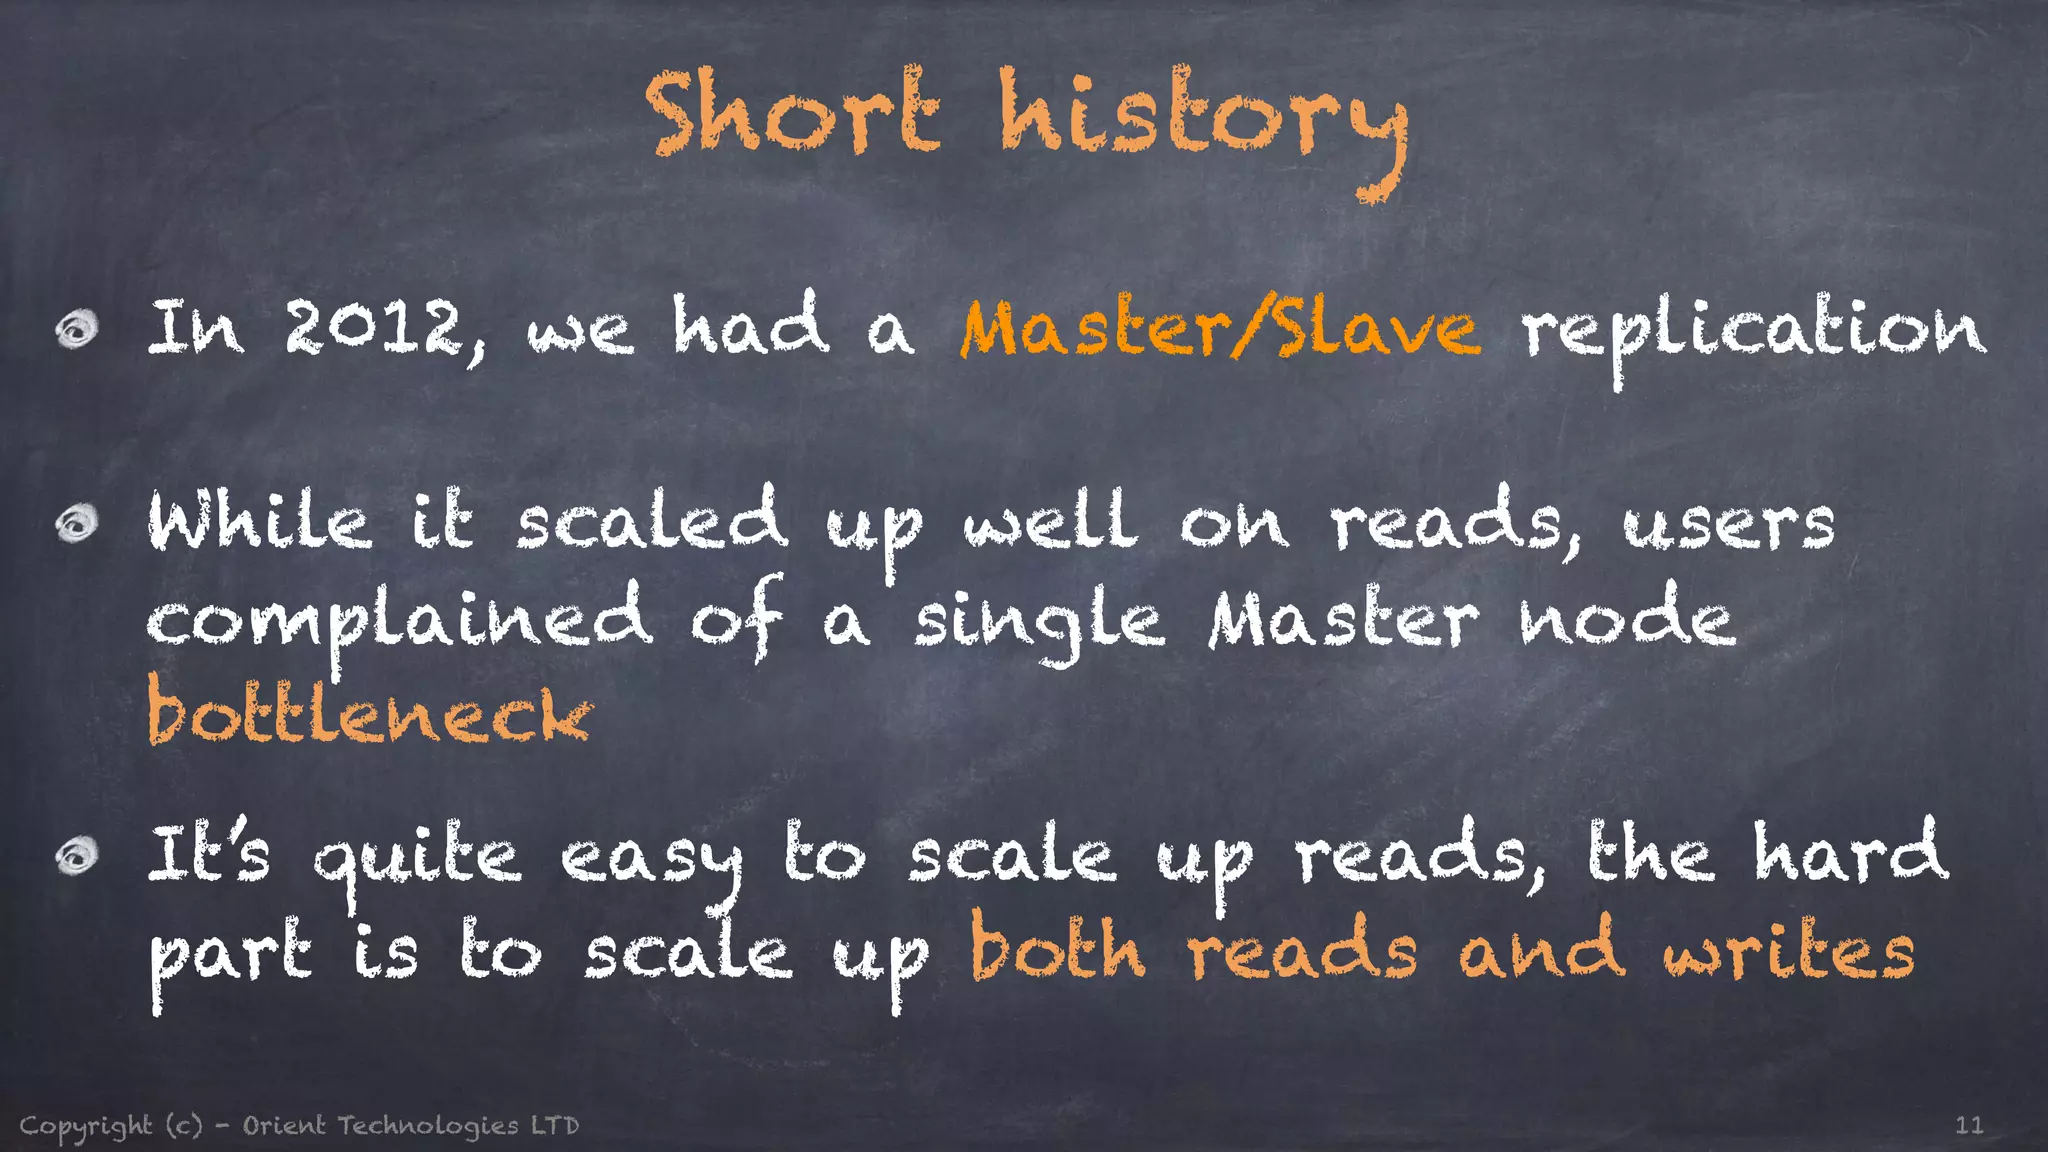 Short history
In 2012, we had a Master/Slave replication
While it scaled up well on reads, users
complained of a single Master node
bottleneck
It's quite easy to scale up reads, the hard
part is to scale up both reads and writes
Copyright (c) - Orient Technologies LTD
11